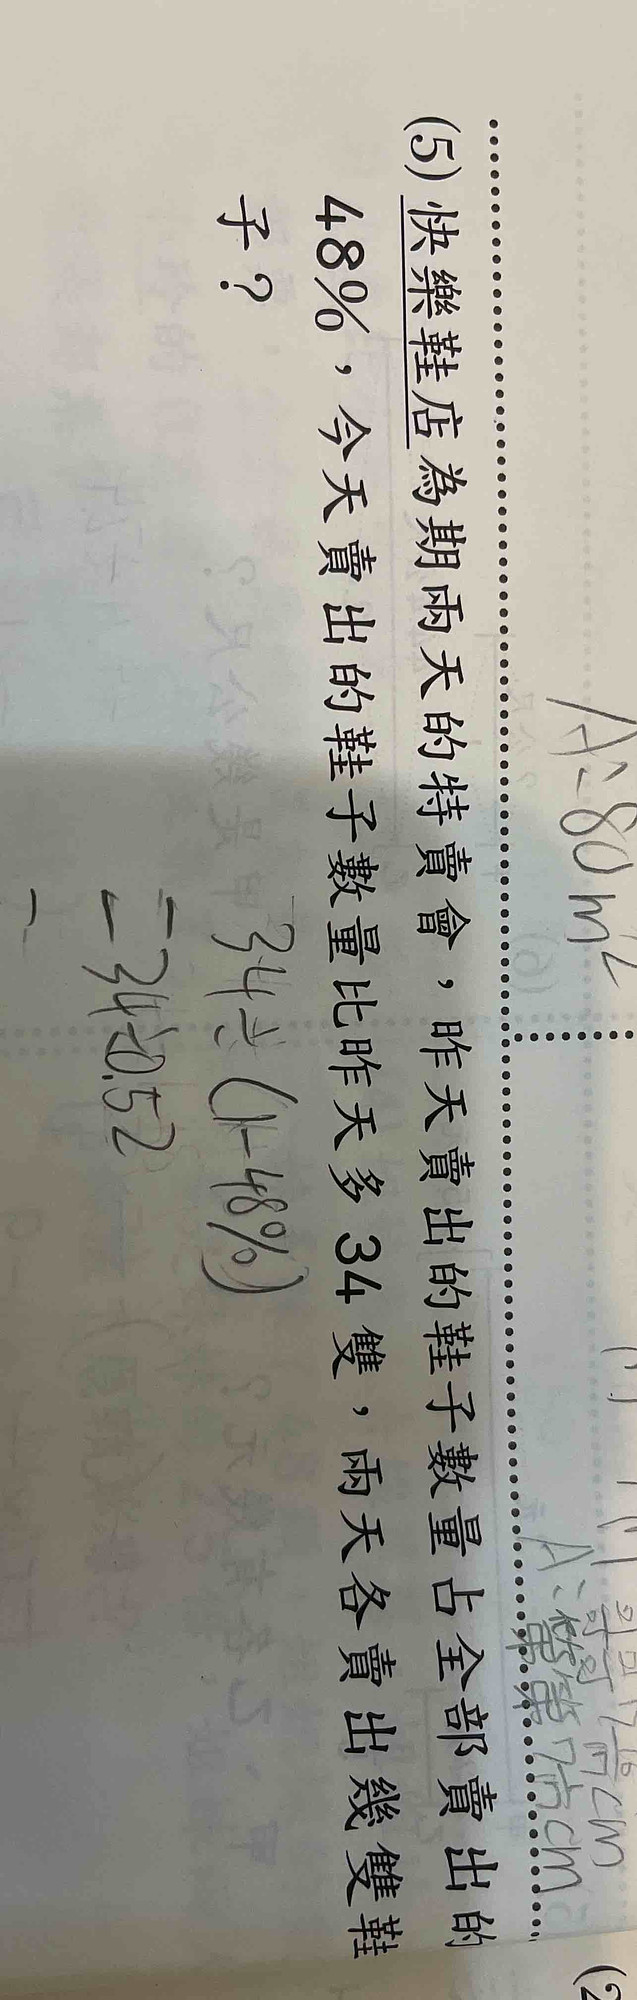 A:80m²
(5) 快樂鞋店為期兩天的特賣會，昨天賣出的鞋子數量占全部賣出的
48%，今天賣出的鞋子數量比昨天多34雙，兩天各賣出幾雙鞋
子？
34÷(1-48%)
=34÷0.52
=
(2